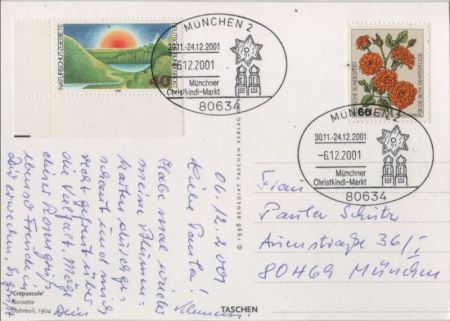 NATURSCHUTZGEBIETE
40
60
MÜNCHEN 2
30.11.-24.12.2001
-6.12.2001
Münchner
Christkindl-Markt
80634
MÜNCHEN 2
30.11.-24.12.2001
-6.12.2001
Münchner
Christkindl-Markt
80634
06.12.2001
Liebe Paula!
Habe mal wieder
meine Blumen-
karten durchge-
schaut und mich
sehr gefreut über
die Vielfalt. Möge
dieser Rosengruß
ebenso Freude in
Dir erwecken. Es grüßt
Dein
"Crépuscule"
Noisette
Dubreuil, 1904
© 1998 BENEDIKT TASCHEN VERLAG
TASCHEN
Frau
Paula
36/I
80469 München